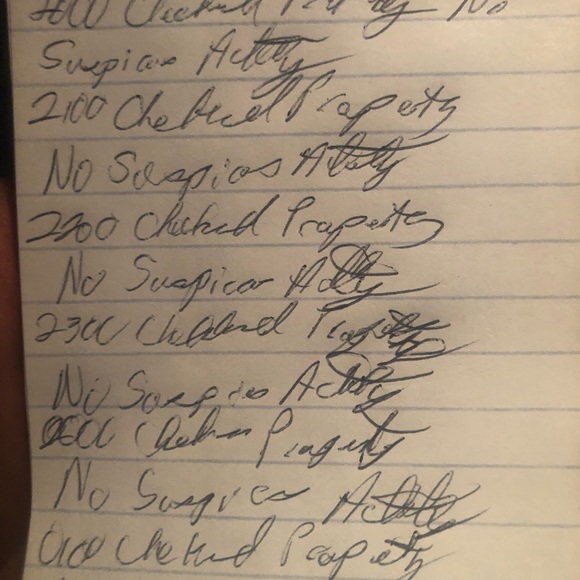 2000 Checked Property No
Suspicious Activity
2100 Checked Property
No Suspicious Activity
2200 Checked Property
No Suspicious Activity
2300 Checked Property
No Suspicious Activity
0000 Checked Property
No Suspicious Activity
0100 Checked Property